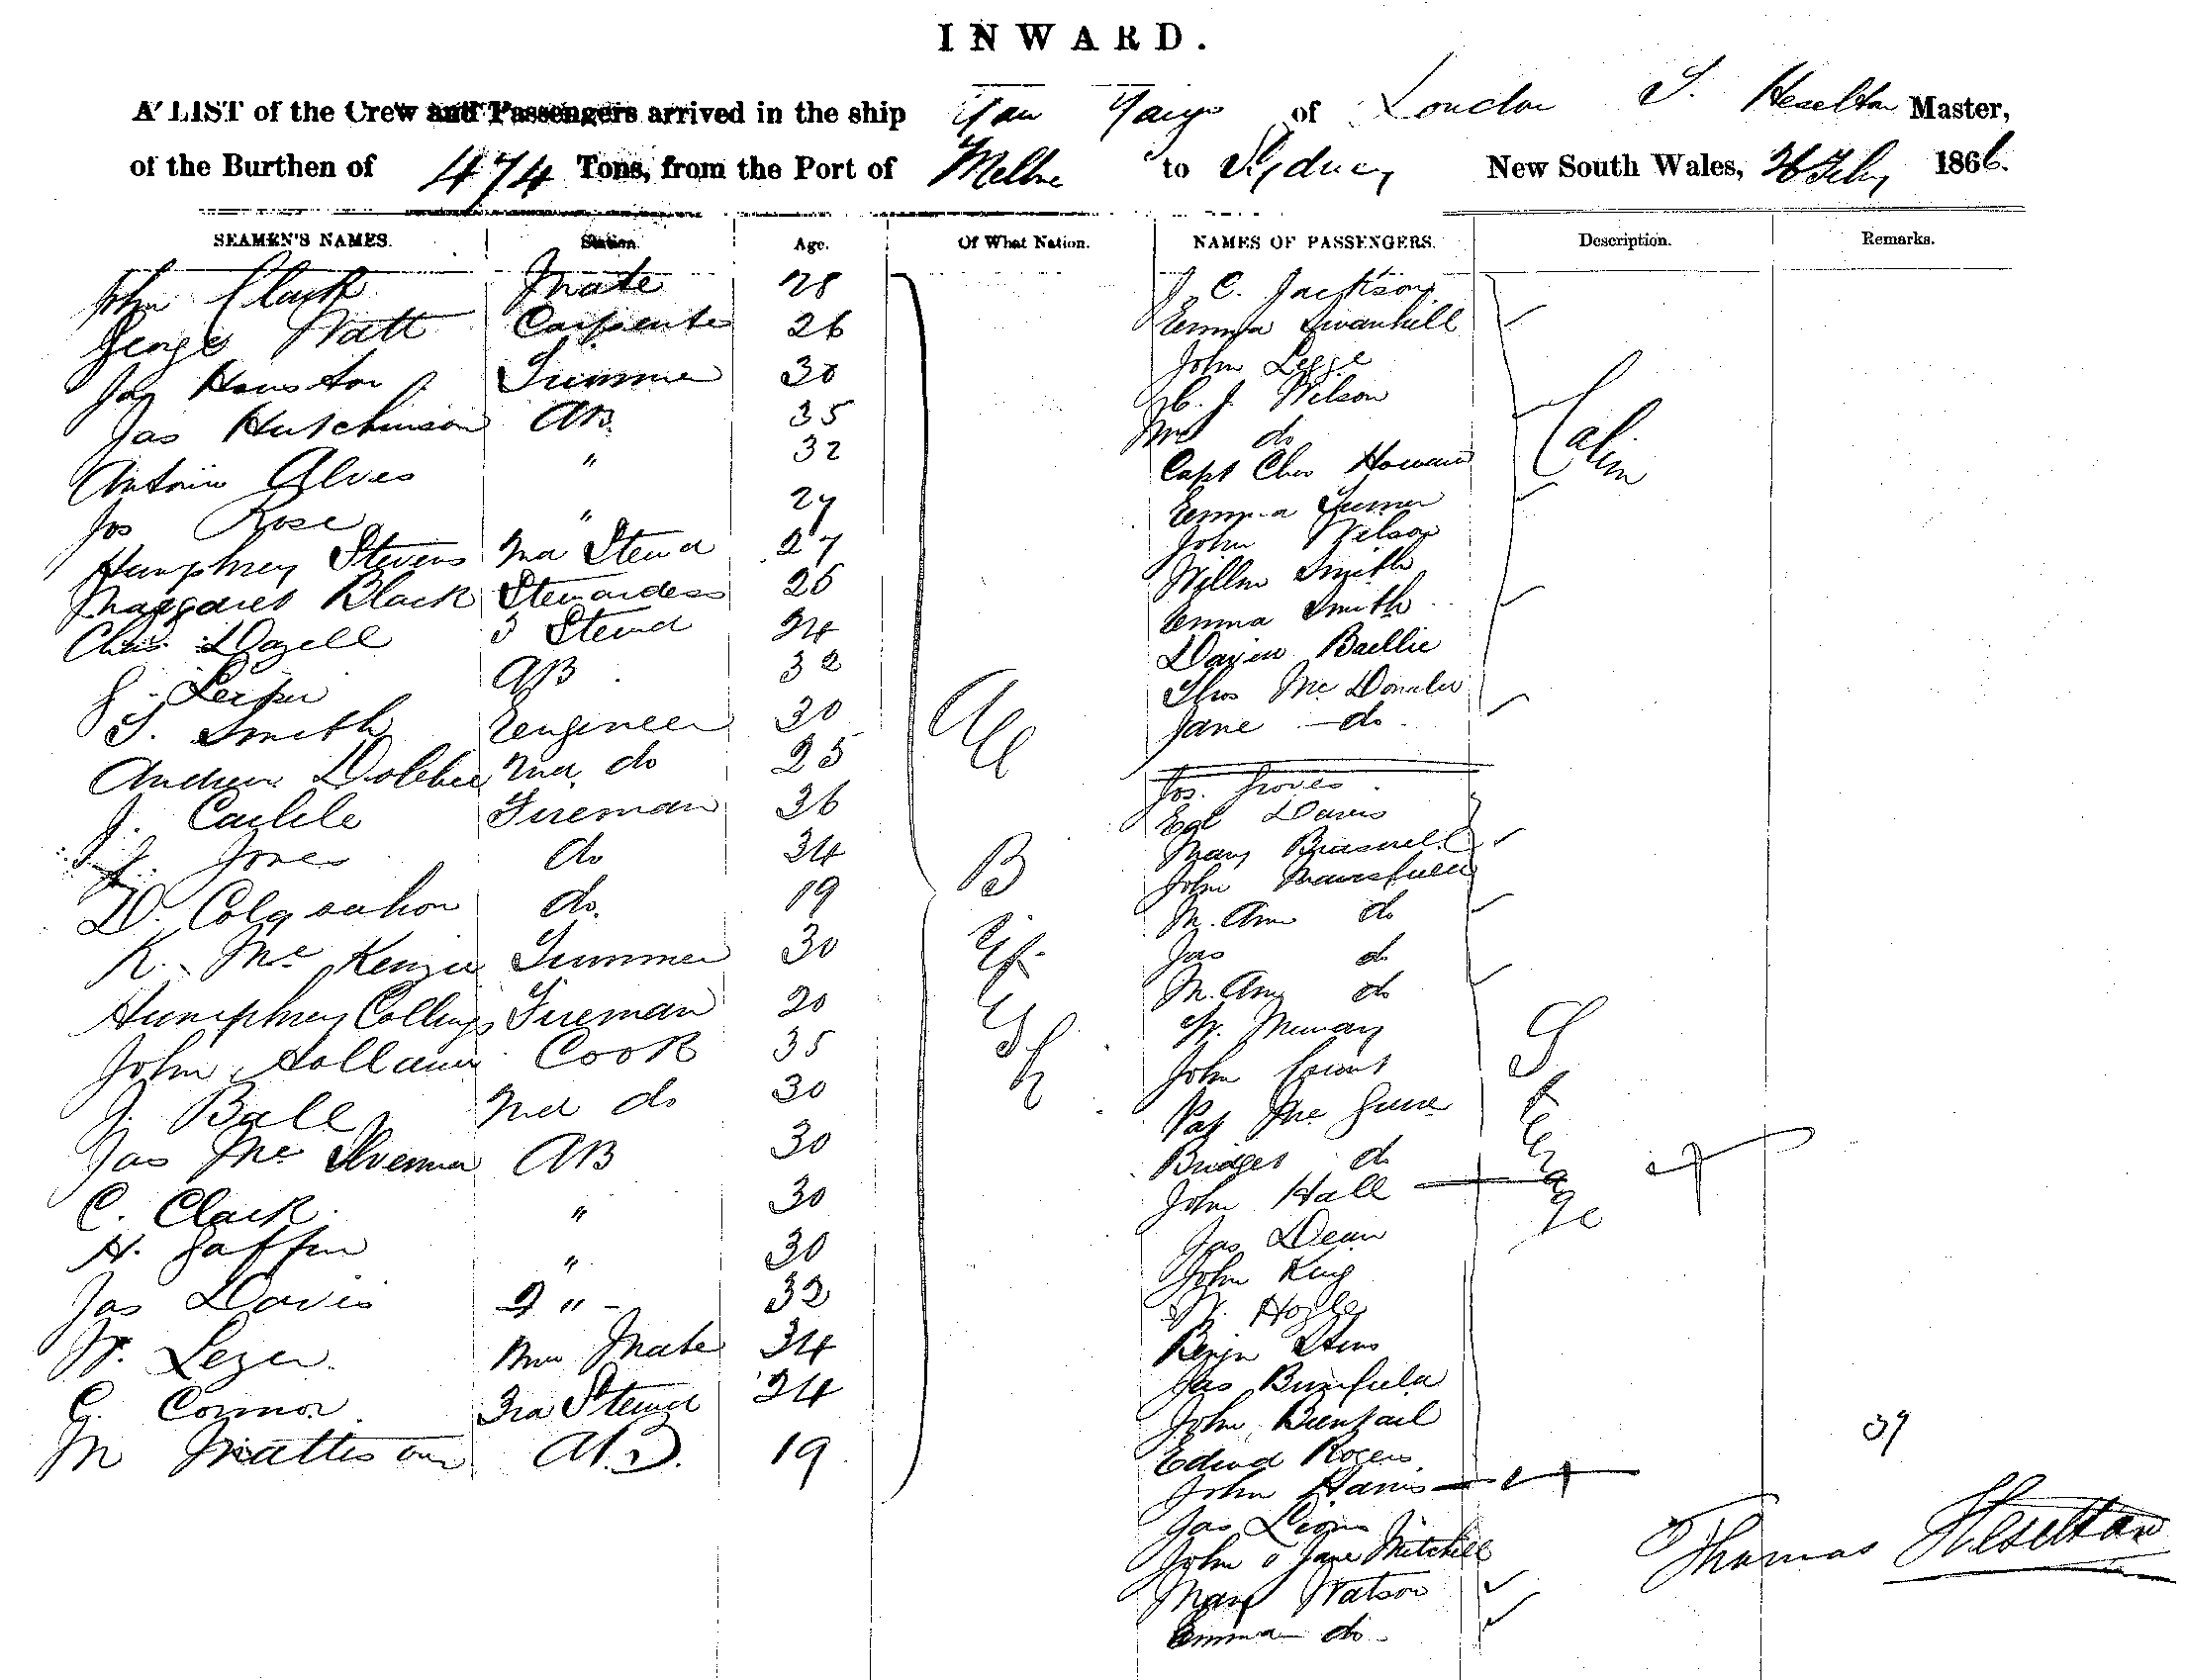 INWARD.
A LIST of the Crew and Passengers arrived in the ship Yan Yang of London T. Heselton Master,
of the Burthen of 474 Tons, from the Port of Melbne to Sydney New South Wales, 26 Feby 1866.
SEAMEN'S NAMES. Station. Age. Of What Nation. NAMES OF PASSENGERS. Description. Remarks.
John Clark Mate 28
George Watt Carpenter 26
Jas Houston 30
Jas Hutchinson AB. 35
Antonio Alves " 32
Jos Rose " 27
Humphrey Stevens 2nd Stewd 27
Margaret Black Stewardess
Chas. Dazell 3 Stewd 24
AB 32
T. Smith Engineer 30
Andrew 2nd do 25
J. Carlile Fireman 36
J. Jones do 34
D. do. 19
K. Mc Kenzie 30
Humphrey Collings Fireman 20
John Holland Cook 35
J. Ball 2nd do 30
Jas Mc AB 30
C. Clark. " 30
H. Gaffin " 30
Jas Davis " 32
W. Mate 34
C. Connor 3rd Stewd 24
M A.B. 19
All
B
J. C. Jackson
Emma Swanhill
John Legge
H. J. Wilson
Mrs do
Capt Chas Howard
Emma Turner
John Wilson
Willm Smith
Emma Smith
David Baillie
Thos Mc Donald
Jane do
Cabin
Jos. Groves
Ed Davis
Mary
John Mansfield
M. Ann do
Jas do
M. Ann do
W. Murray
John Count
Pat Mc Guire
Bridget do
John Hall
Jas Dean
John King
W.
Benjn
Jas Bumfield
John
Edwd Rogers
John Harris
Jas Lions
John & Jane Mitchell
Mary Watson
Emma do
Steerage
39
Thomas Heselton